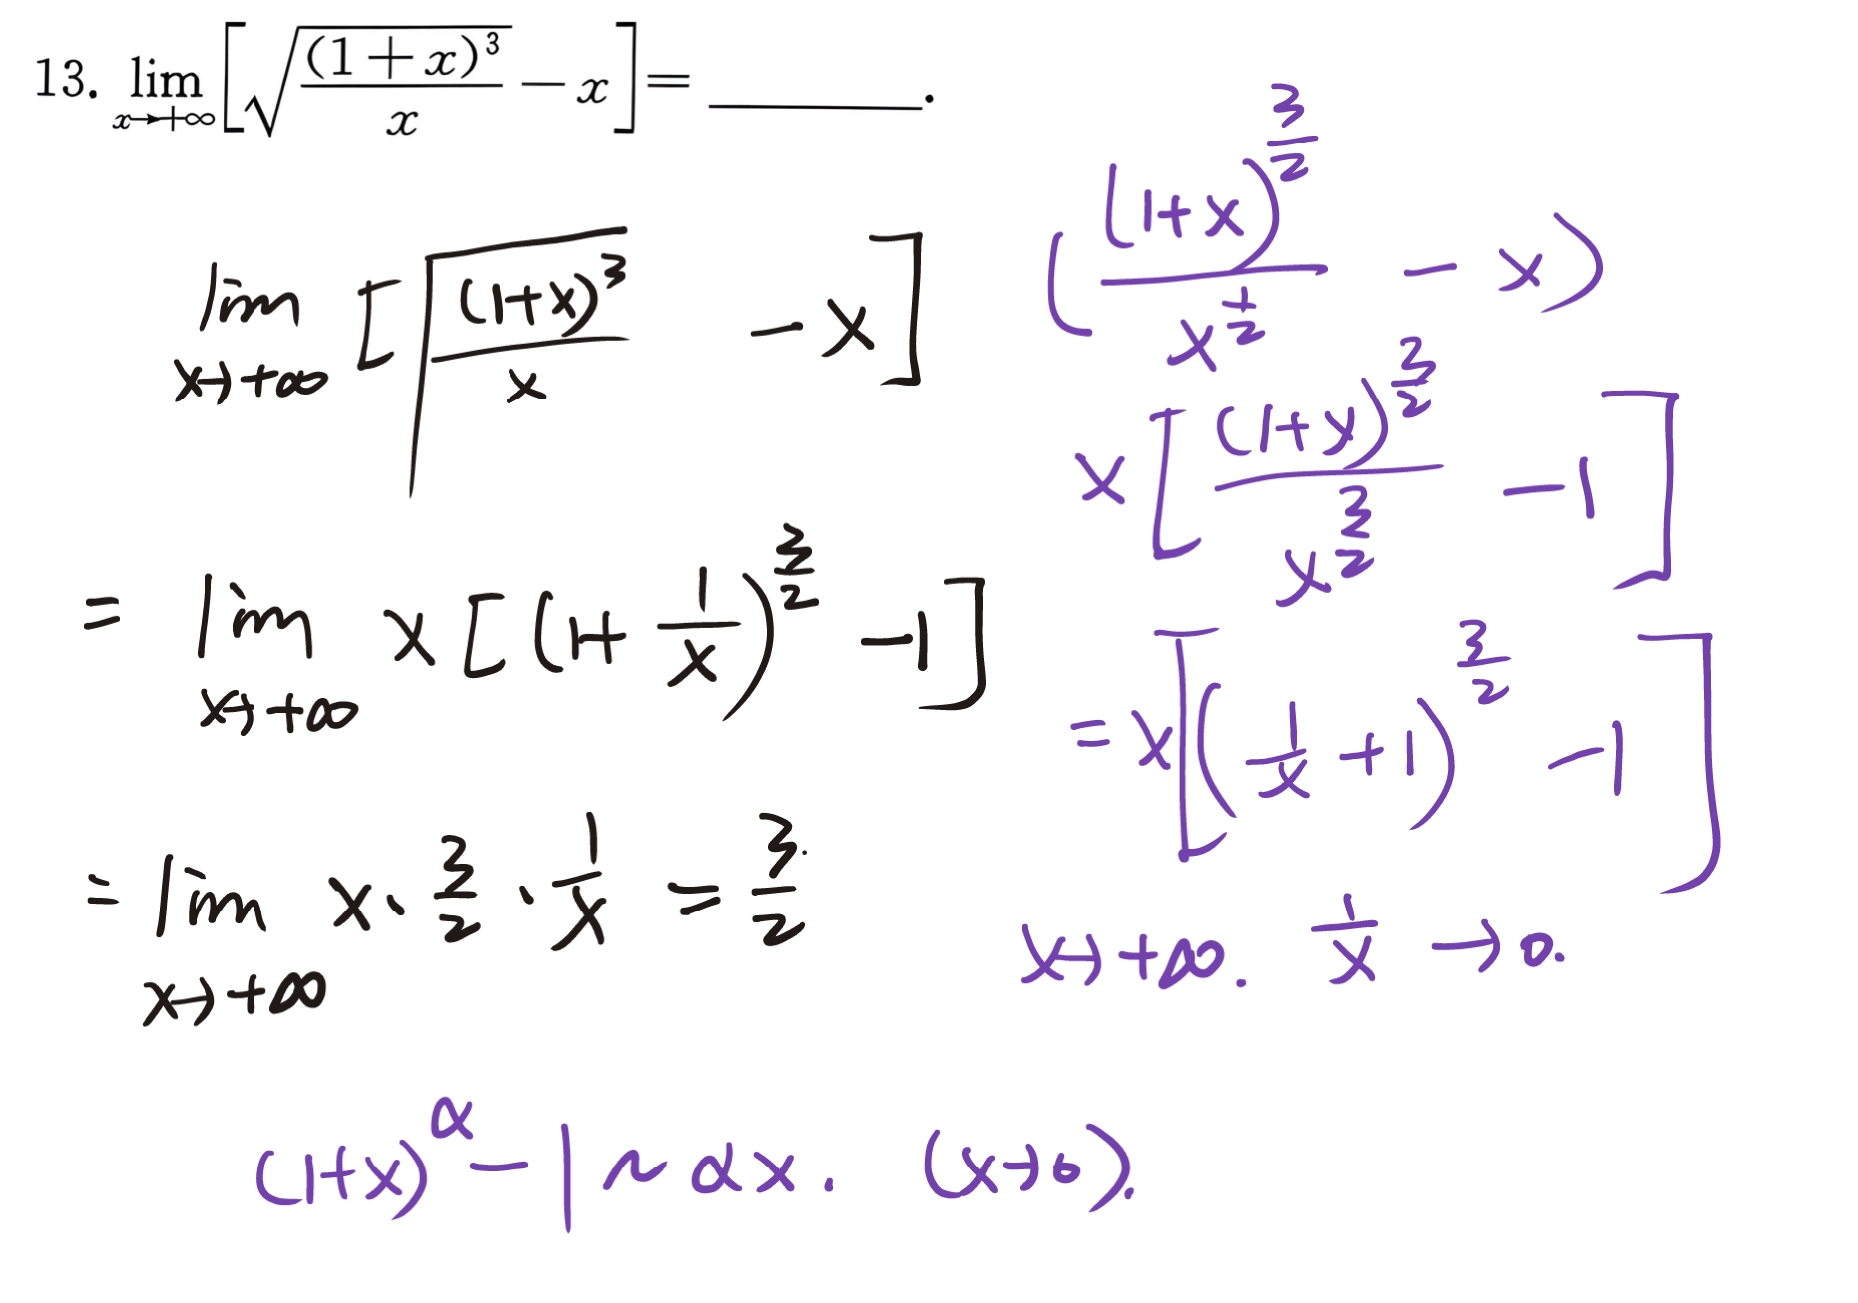 13. lim_{x→+∞} [√((1+x)³/x) − x] = ________.
lim_{x→+∞} [√((1+x)³/x) − x]
= lim_{x→+∞} x[(1+1/x)^{3/2} − 1]
= lim_{x→+∞} x · 3/2 · 1/x = 3/2
((1+x)^{3/2}/x^{1/2} − x)
x[(1+x)^{3/2}/x^{3/2} − 1]
= x[(1/x + 1)^{3/2} − 1]
x→+∞. 1/x → 0.
(1+x)^α − 1 ~ αx. (x→0).